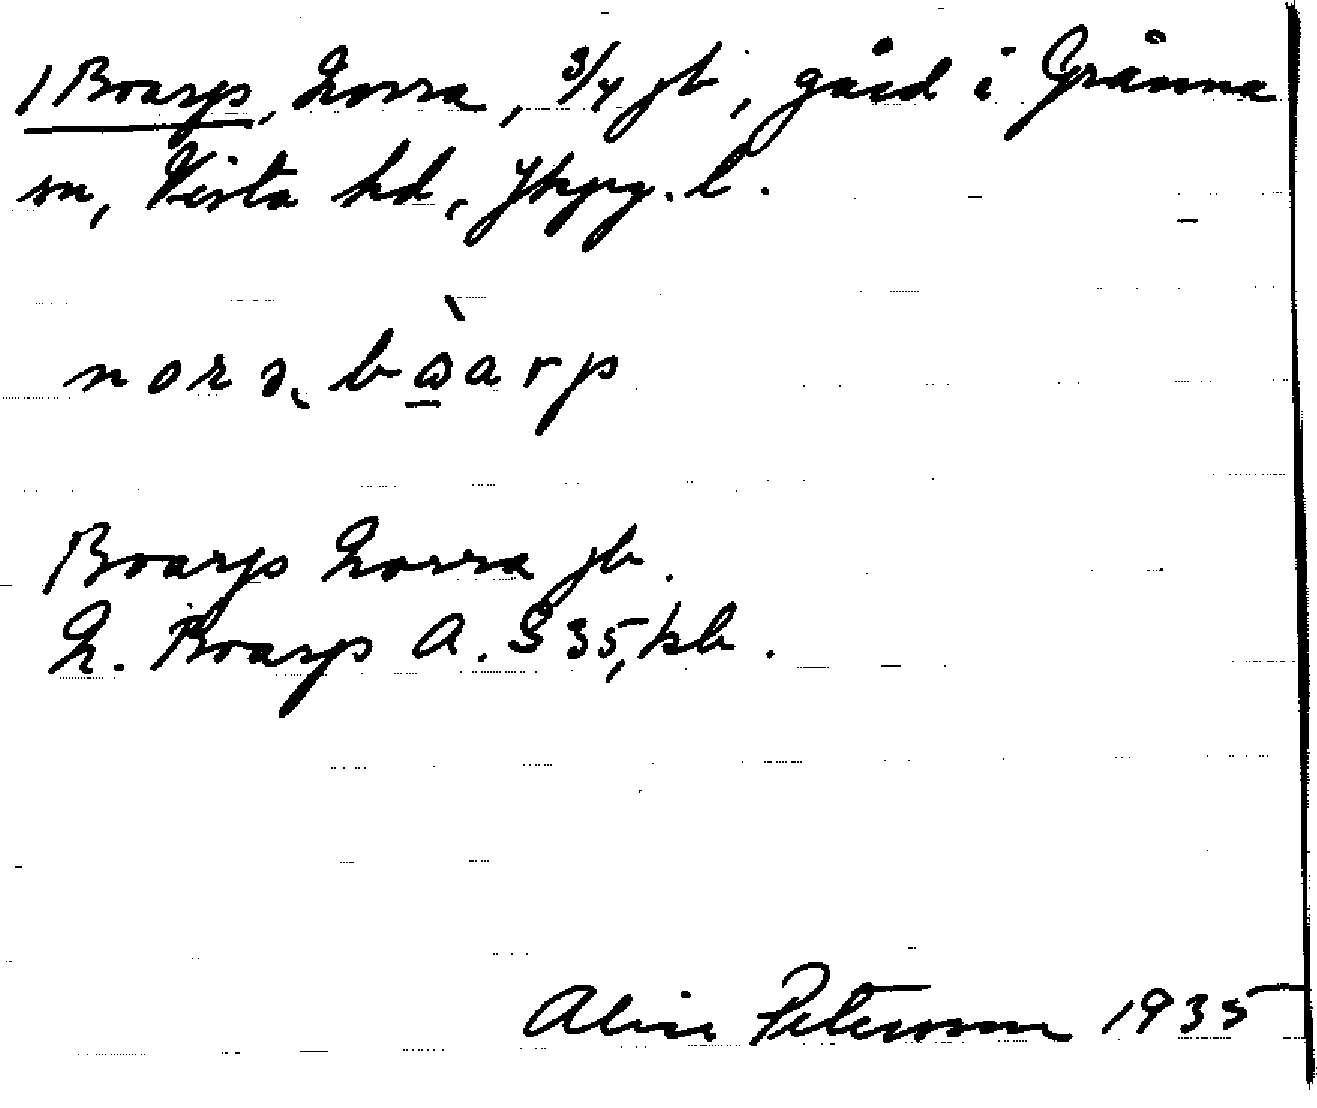 1 Boarp, Norra, 3/4 jb, gård i Gränna
sn, Vista hd, Jkpg. l.
norə, bòarp
Boarp Norra jb.
N. Boarp A. S 35, kb.
Alice Peterson 1935